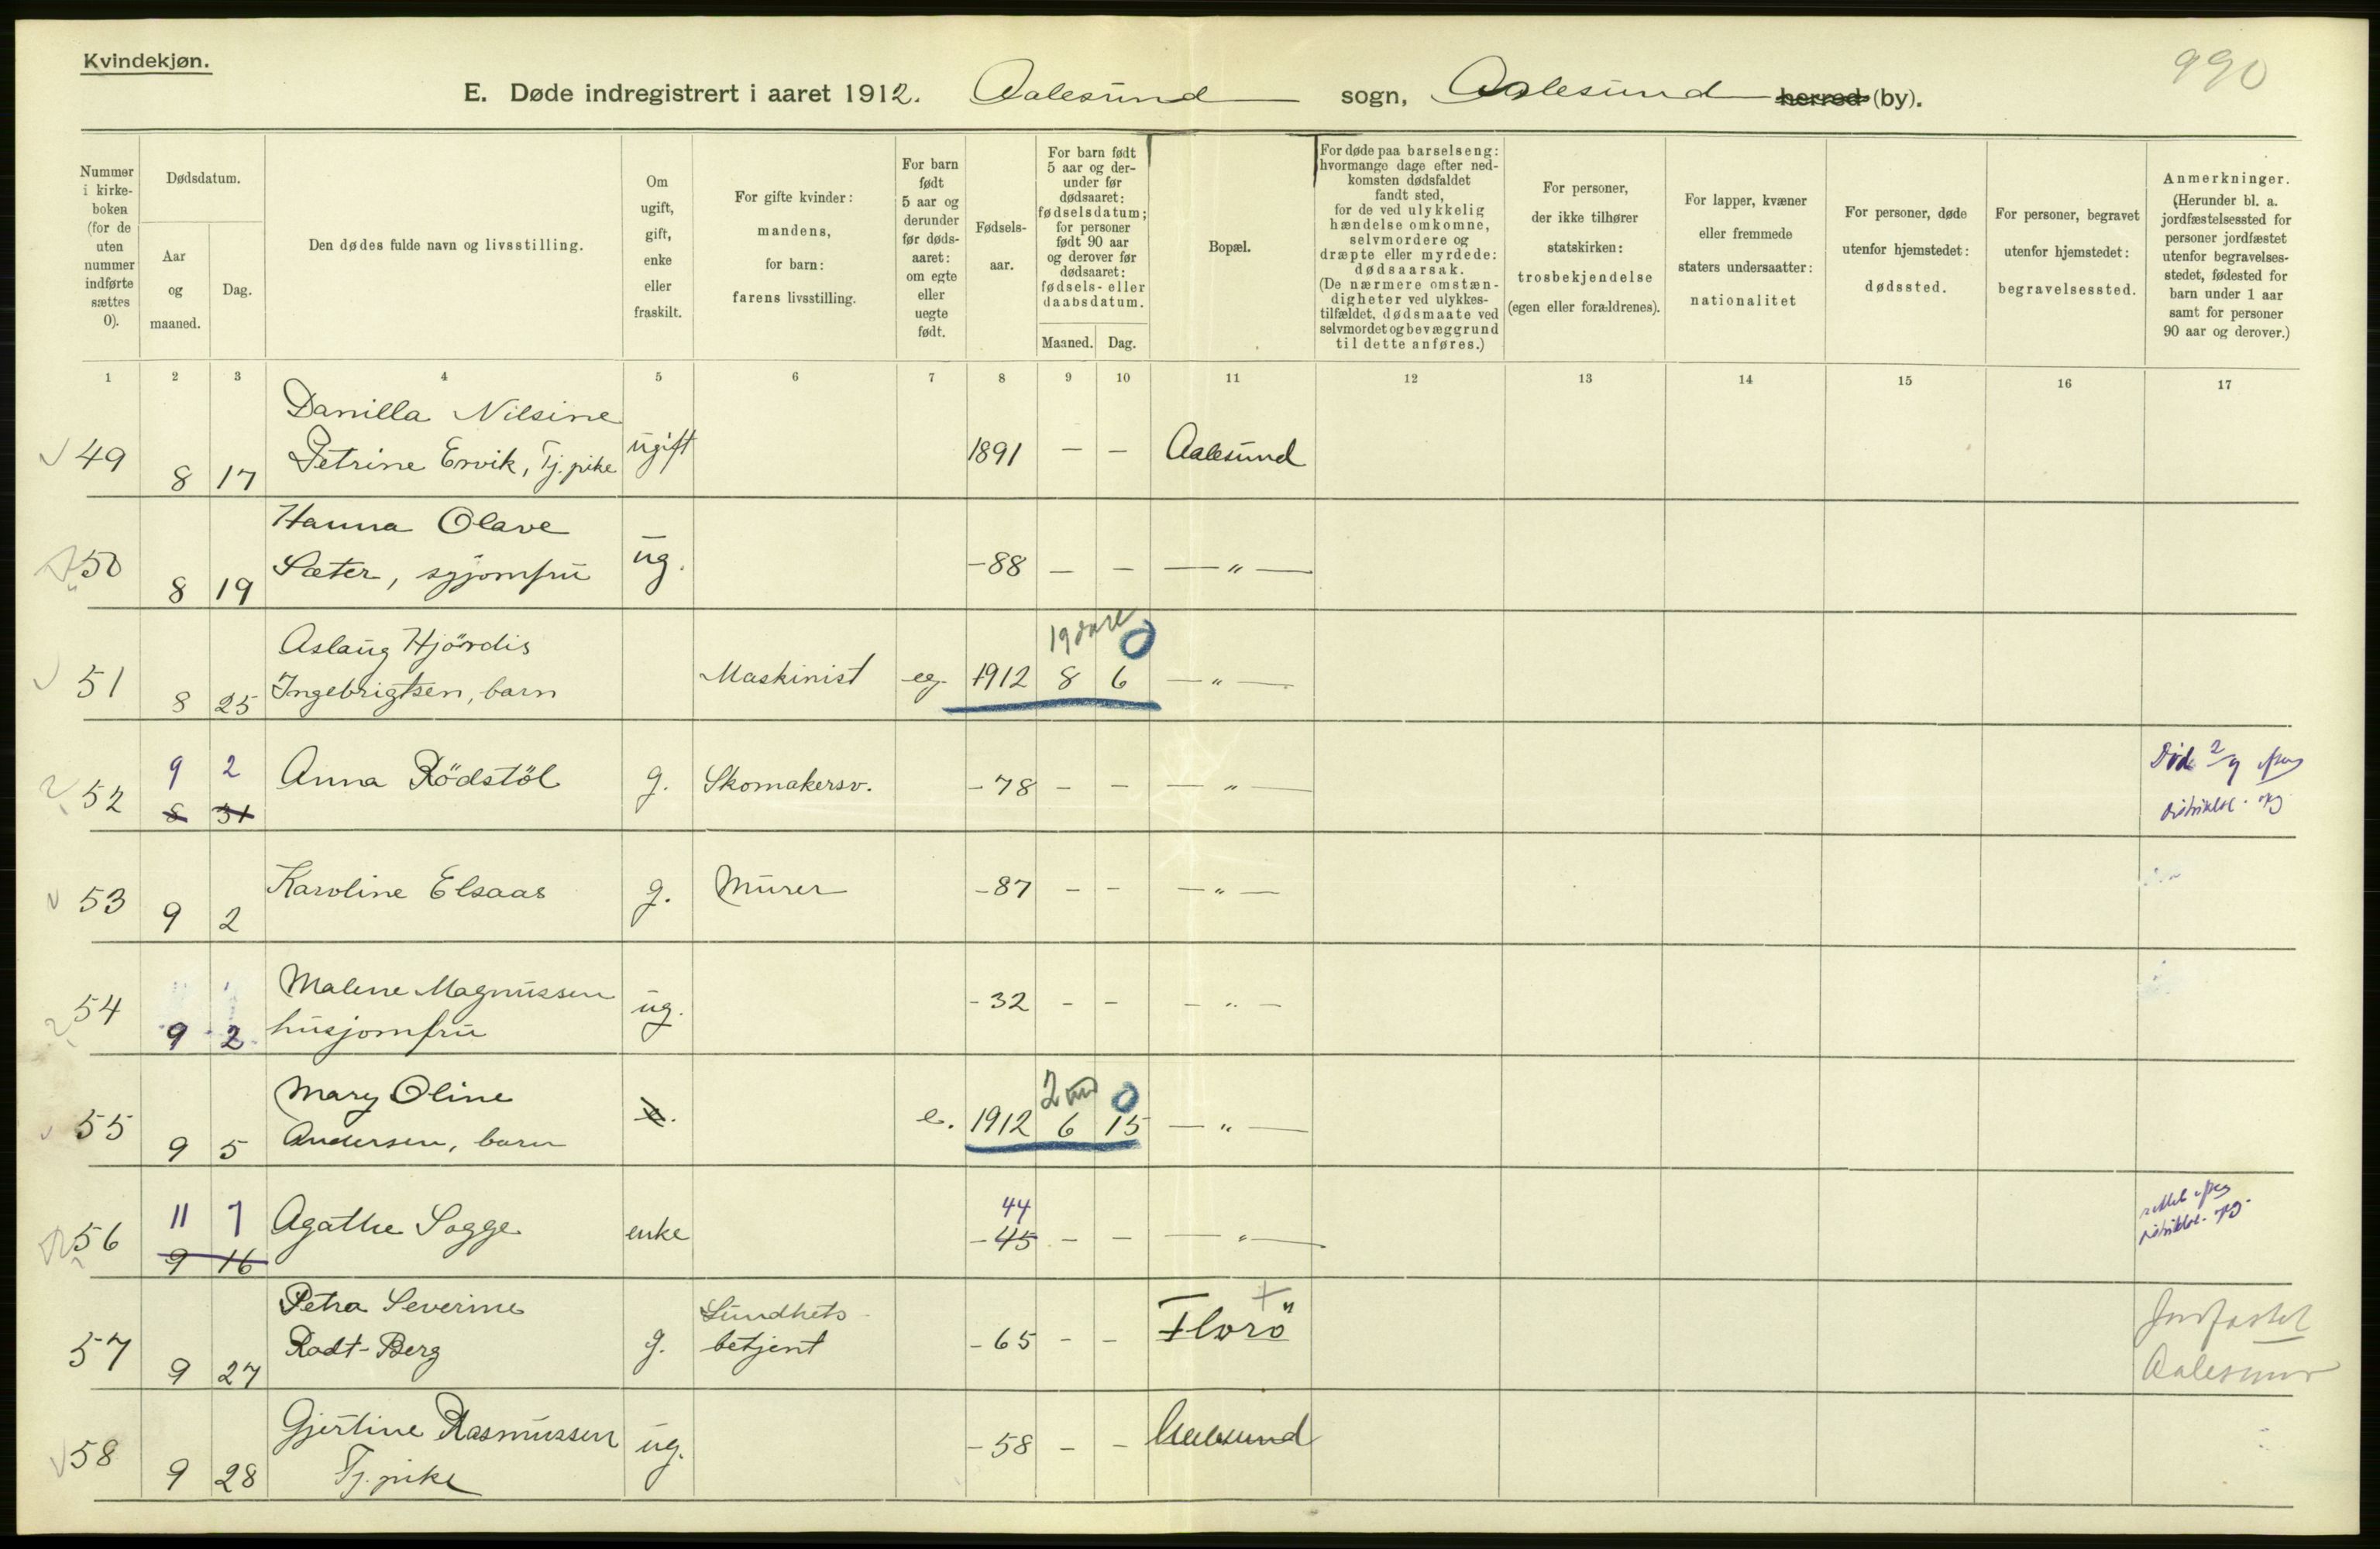 Kvindekjøn.
990
E. Døde indregistrert i aaret 1912. Aalesund sogn, Aalesund herred (by).
Nummer i kirkeboken (for de uten nummer indførte sættes 0).
Dødsdatum.
Aar og maaned.
Dag.
Den dødes fulde navn og livsstilling.
Om ugift, gift, enke eller fraskilt.
For gifte kvinder: mandens, for barn: farens livsstilling.
For barn født 5 aar og derunder før dødsaaret: om egte eller uegte født.
Fødselsaar.
For barn født 5 aar og derunder før dødsaaret: fødselsdatum; for personer født 90 aar og derover før dødsaaret: fødsels- eller daabsdatum.
Maaned. Dag.
Bopæl.
For døde paa barselseng: hvormange dage efter nedkomsten dødsfaldet fandt sted, for de ved ulykkelig hændelse omkomne, selvmordere og dræpte eller myrdede: dødsaarsak. (De nærmere omstændigheter ved ulykkestilfældet, dødsmaate ved selvmordet og bevæggrund til dette anføres.)
For personer, der ikke tilhører statskirken: trosbekjendelse (egen eller forældrenes).
For lapper, kvæner eller fremmede staters undersaatter: nationalitet
For personer, døde utenfor hjemstedet: dødssted.
For personer, begravet utenfor hjemstedet: begravelsessted.
Anmerkninger. (Herunder bl. a. jordfæstelsessted for personer jordfæstet utenfor begravelsesstedet, fødested for barn under 1 aar samt for personer 90 aar og derover.)
1 2 3 4 5 6 7 8 9 10 11 12 13 14 15 16 17
Danilla Nilsine
49 8 17 Petrine Ervik, Tj.pike ugift 1891 – – Aalesund
Hanna Olave
50 8 19 Sæter, syjomfru ug. -88 – – — " —
19 dage 0
Aslaug Hjördis
51 8 25 Ingebrigtsen, barn Maskinist eg. 1912 8 6 — " —
9 2 Død 2/9
52 8 31 Anna Rödstöl g. Skomakersv. -78 – – — " —
53 9 2 Karoline Elsaas g. Murer -87 – – — " —
Malene Magnussen
54 9 2 husjomfru ug. -32 – – — " —
2 0
Mary Oline
55 9 5 Andersen, barn e. 1912 6 15 — " —
11 7 44
56 9 16 Agathe Sogge enke -45 – – — " —
Petra Severine Sundhets-
57 9 27 Rodt-Berg g. betjent -65 – – Florö Jordfæstet
Aalesund
Gjertine Rasmussen
58 9 28 Tj.pike ug. -58 – – Aalesund